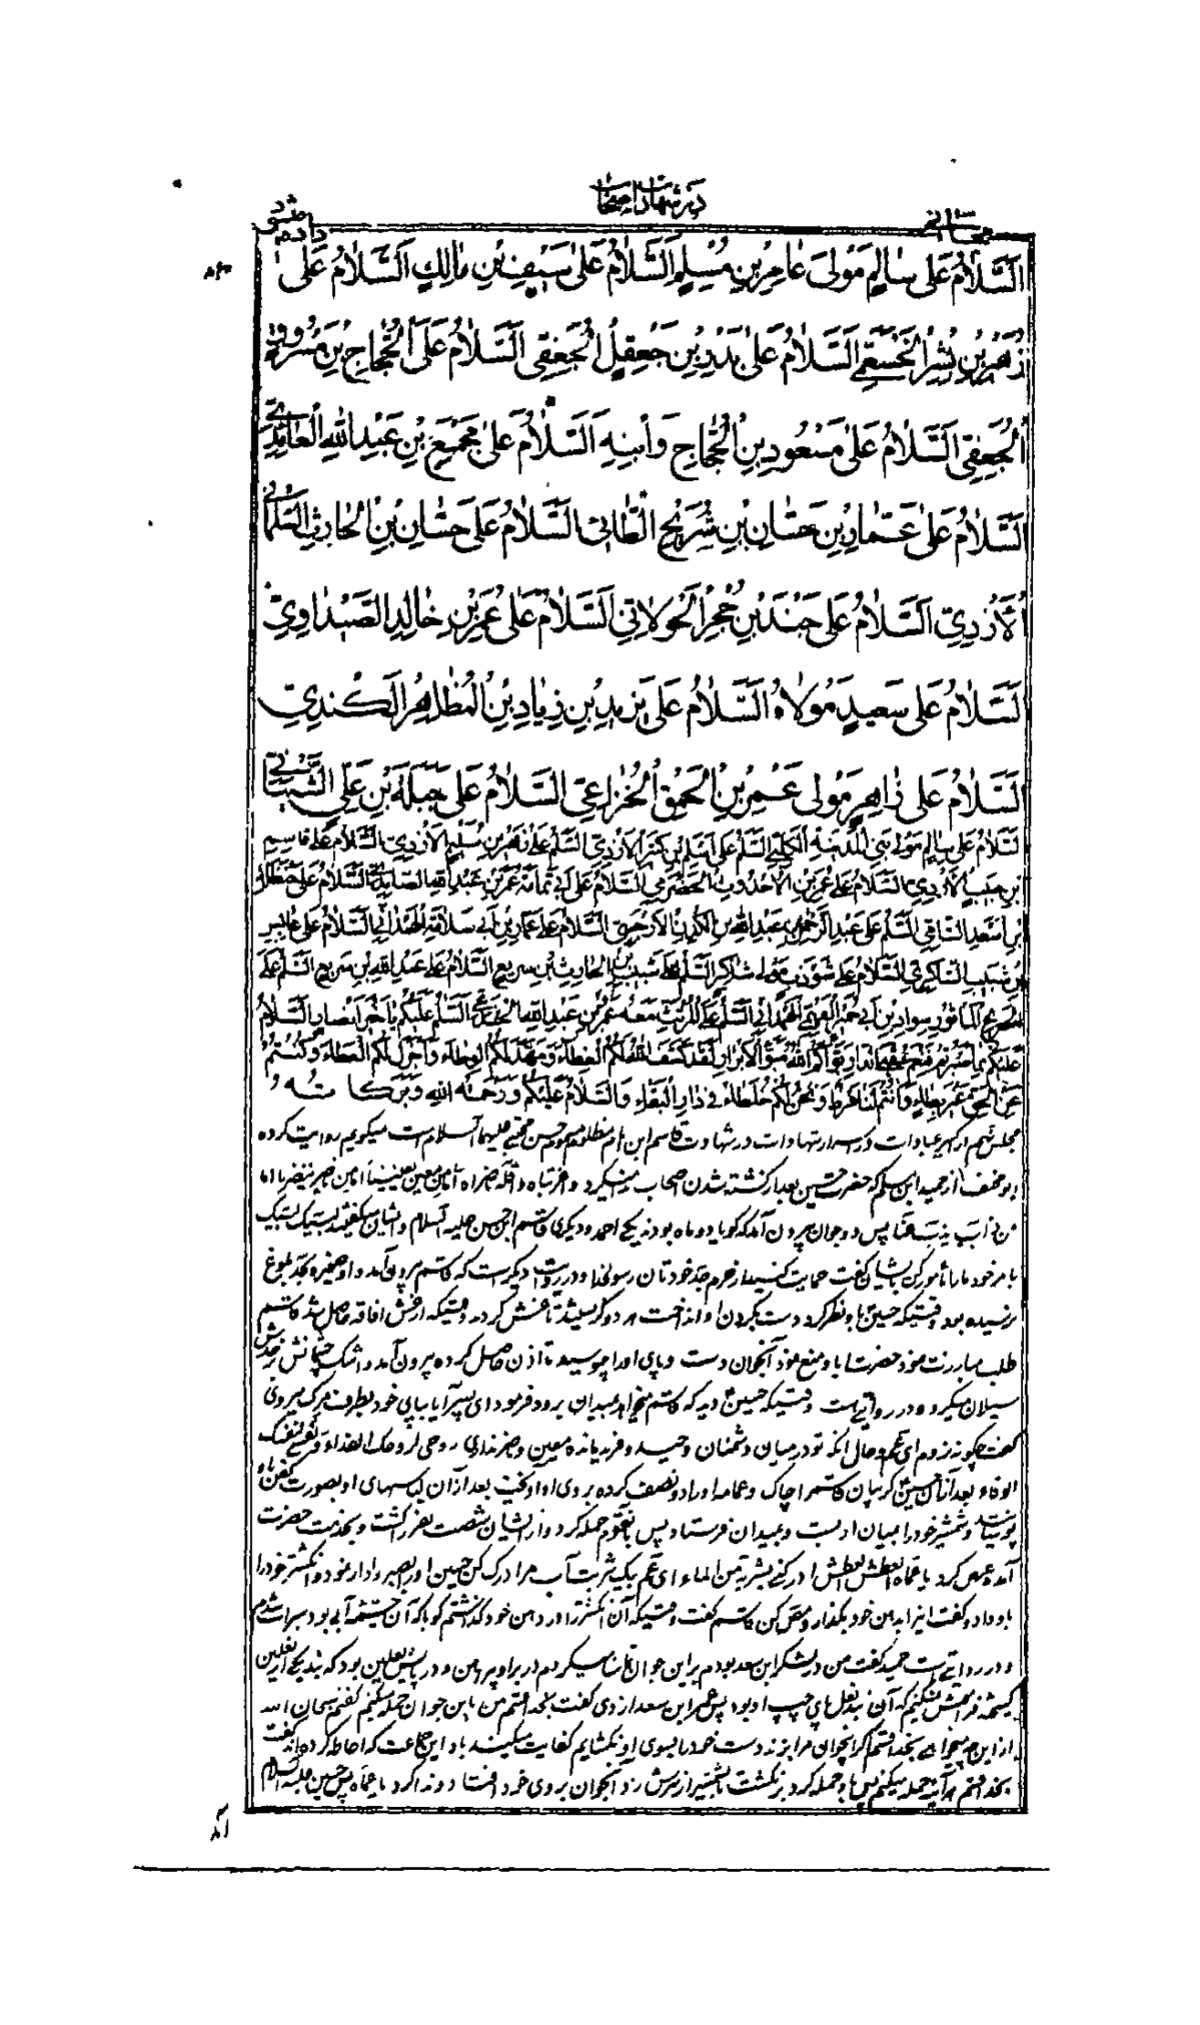 در شهادت اصحاب
السَّلَامُ عَلَى سَالِمٍ مَوْلَى عَامِرِ بْنِ مُسْلِمٍ السَّلَامُ عَلَى سَيْفِ بْنِ مَالِكٍ السَّلَامُ عَلَى
زُهَيْرِ بْنِ بُشْرٍ الْخَثْعَمِيِّ السَّلَامُ عَلَى بَدْرِ بْنِ جَعْقِلٍ الْجُعْفِيِّ السَّلَامُ عَلَى الْحَجَّاجِ بْنِ مَسْرُوقٍ
الْجُعْفِيِّ السَّلَامُ عَلَى مَسْعُودِ بْنِ الْحَجَّاجِ وَابْنِهِ السَّلَامُ عَلَى مَجْمَعِ بْنِ عَبْدِ اللَّهِ الْعَائِدِيِّ
السَّلَامُ عَلَى عَمَّارِ بْنِ حَسَّانِ بْنِ شُرَيْحٍ الطَّائِيِّ السَّلَامُ عَلَى حَسَّانِ بْنِ الْحَارِثِ السَّلْمَانِيِّ
الْأَزْدِيِّ السَّلَامُ عَلَى جُنْدَبِ بْنِ حُجْرٍ الْخَوْلَانِيِّ السَّلَامُ عَلَى عُمَرَ بْنِ خَالِدٍ الصَّيْدَاوِيِّ
السَّلَامُ عَلَى سَعِيدٍ مَوْلَاهُ السَّلَامُ عَلَى يَزِيدَ بْنِ زِيَادِ بْنِ الْمُظَاهِرِ الْكِنْدِيِّ
السَّلَامُ عَلَى زَاهِرٍ مَوْلَى عَمْرِ بْنِ الْحَمِقِ الْخُزَاعِيِّ السَّلَامُ عَلَى جَبَلَةَ بْنِ عَلِيٍّ الشَّيْبَانِيِّ
السلام على سالم مولى بني المدينة الكلبي السلم على اسلم بن كثير الازدي السلم على زهير بن سليم الازدي السلام على قاسم
بن حبيب الازدي السلام على عمر بن الاحدوث الحضرمي السلام على ابي ثمامة عمر بن عبد الله الصايدي السلام على حنظلة
بن اسعد السلم على عبد الرحمن بن عبد الله بن الكدن الارحبي السلام على عمار بن ابي سلامة الهمداني السلام على عابس
بن شبيب الشاكري السلام على شوذب مولى شاكر السلم على شبيب بن الحارث بن سريع السلام على عبد الله بن سريع السلم على
الجريح المأثور سوار بن ابي حمير الهمداني السلم على المرتث معه عمر بن عبد الله السلم عليكم يا خير انصار السلام
عليكم بما صبرتم فنعم عقبى الدار بوأكم الله مبوأ الابرار لقد كشف الله لكم الغطاء ومهد لكم الوطاء واجزل لكم العطاء وكنتم
عن الحق غير بطاء وانتم لنا فرط ونحن لكم خلطاء في دار البقاء والسلام عليكم ورحمة الله وبركاته
مجلس نهم از عبادات در شهادت قاسم ابن امام مظلوم حسن مجتبی علیهما السلام است میگویم روایت کرده
ابو مخنف از حمید ابن مسلم که حضرت حسین بعد از کشته شدن اصحاب
پس دو جوان بیرون آمد که گویا دو ماه بودند یکی احمد و دیگری قاسم ابن حسن علیه السلام و ایشان میگفتند لبیک لبیک
با مر خود ما را مأمور کن بایشان گفت حمایت کنید از حرم جد خودتان رسول خدا و در روایت دیگر است که قاسم بیرون آمد و او صغیره بحد بلوغ
نرسیده بود وقتیکه حسین باو نظر کرد دست بگردن او انداخت هر دو گریستند تا غش کردند وقتیکه از غش افاقه حاصل شد قاسم
طلب مبارزت نمود حضرت ابا و منع نمود آنجوان دست و پای او را بوسید تا اذن حاصل کرده بیرون آمد و اشک چشمانش
سیلان میکرد و در روایتی است وقتیکه حسین دید که قاسم میخواهد بمیدان برود فرمود ای پسر آیا بپای خود بطرف مرگ میروی
گفت چگونه نروم ای عم و حال آنکه تو در میان دشمنان وحید و فرید مانده معین و ناصر نداری روحی لروحک الفداء و نفسی لنفسک
الوقاء بعد از آن حسین گریبان قاسم را چاک و عمامه او را دو نصف کرده بروی او آویخت بعد از آن لباسهای او بصورت کفن باو
پوشانید و شمشیر خود را بمیان او بست و بمیدان فرستاد پس بآنقوم حمله کرد و از ایشان شصت نفر کشت و بخدمت حضرت
آمده عرض کرد یا عماه العطش العطش ادرکنی بشربة من الماء ای عم بیک شربت آب مرا درک کن حسین او را بصبر وادار نمود و انگشتر خود را
باو داد و گفت اینرا بدهن خود بگذار و مص کن قاسم گفت وقتیکه آن انگشتر را در دهن خود گذاشتم گویا که آن چشمه آبی بود سیراب شدم
و در روایتی است حمید گفت من در لشکر ابن سعد بودم بر این جوان تماشا میکردم در بر او پیراهن و در پایش نعلین بود که بند یکی از نعلین
گسیخته فراموش نمیکنم که آن بند نعل پای چپ او بود پس عمر ابن سعد ازدی گفت بخدا قسم من باین جوان حمله میکنم گفتم سبحان الله
از این چه میخواهی بخدا قسم اگر اینجوان مرا بزند دست خود را بسوی او نگشایم کفایت میکنند باو این جماعت که احاطه کرده اند گفت
بخدا قسم هر آینه حمله میکنم پس باو حمله کرد برنگشت تا شمشیر از سرش زد آنجوان بروی خود افتاد و ندا کرد یا عماه پس حسین علیه السلام
آمد